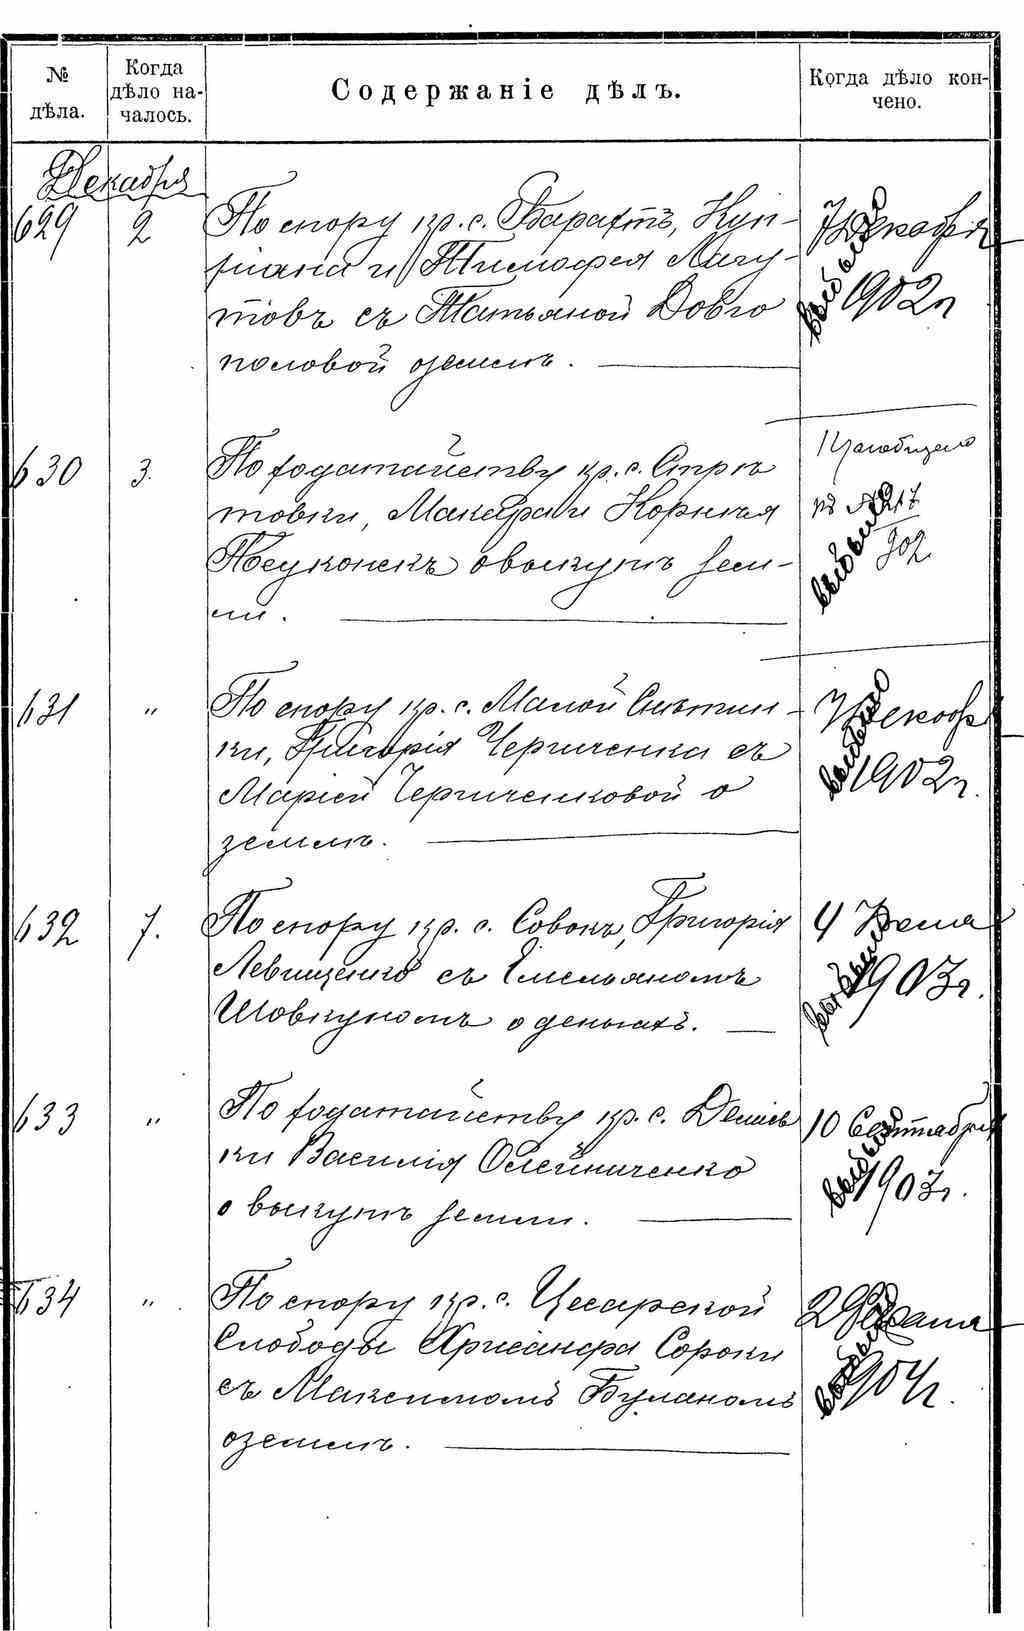 № дѣла.
Когда дѣло началось.
Содержаніе дѣлъ.
Когда дѣло кончено.
Декабря
629 2 По спору кр. с. Барахтъ, Куп-
ріана и Тимофея Личу-
товъ съ Татьяной Довго
половой о землѣ.
7 Декабря
1902 г
выбыло
630 3. По ходатайству кр. с. Стрѣ
товки, Макара и Корнѣя
о выкупѣ зем-
ли.
къ № 217
902
выбыло
631 " По спору кр. с. Малой Снѣтин-
ки, Григорія Черниченка съ
Маріей Черниченковой о
землѣ.
7 Декабр
1902 г.
выбыло
632 7. По спору кр. с. Совокъ, Григорія
Левищенко съ Емельяномъ
Шовкуномъ о деньгахъ.
4
1903 г.
выбыло
633 " По ходатайству кр. с. Дешев
ки Василія Олейниченко
о выкупѣ земли.
10 Сентября
1903 г.
выбыло
634 " По спору кр. с. Цесарской
Слободы Сороки
съ Максимомъ Буланомъ
о землѣ.
904 г.
выбыло